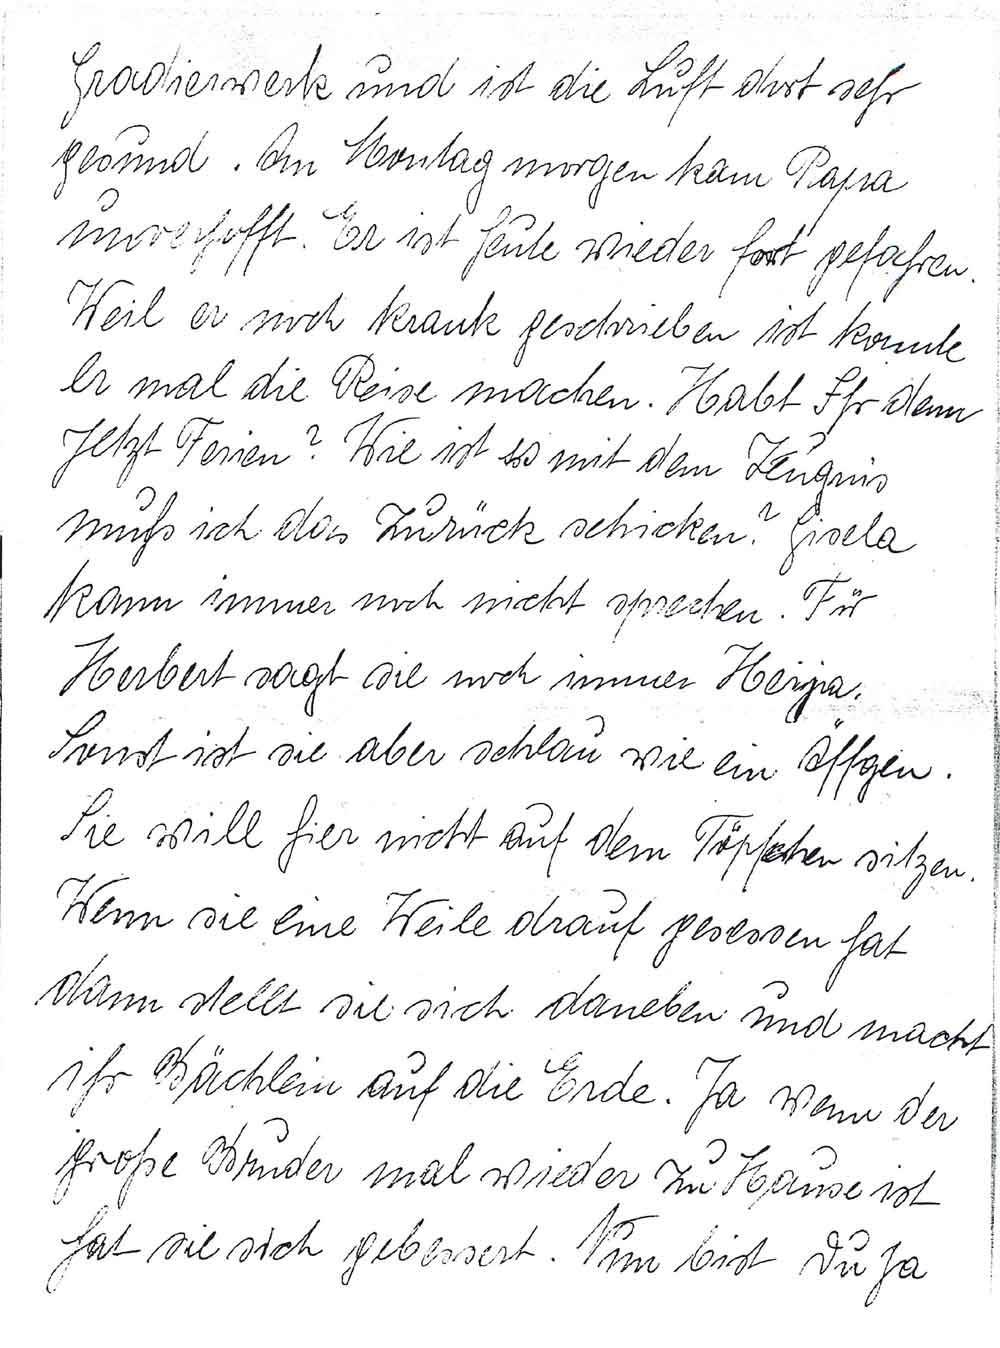 Gradierwerk und ist die Luft dort sehr
gesund. Am Montag morgen kam Papa
unverhofft. Er ist heute wieder fort gefahren.
Weil er noch krank geschrieben ist konnte
er mal die Reise machen. Habt Ihr denn
jetzt Ferien? Wie ist es mit dem Zeugnis
muß ich das zurück schicken? Gisela
kann immer noch nicht sprechen. Für
Herbert sagt sie noch immer Heija.
Sonst ist sie aber schlau wie ein Äffgen.
Sie will hier nicht auf dem Töpfchen sitzen.
Wenn sie eine Weile drauf gesessen hat
dann stellt sie sich daneben und macht
ihr Bächlein auf die Erde. Ja wenn der
große Bruder mal wieder zu Hause ist
hat sie sich gebessert. Nun bist Du ja